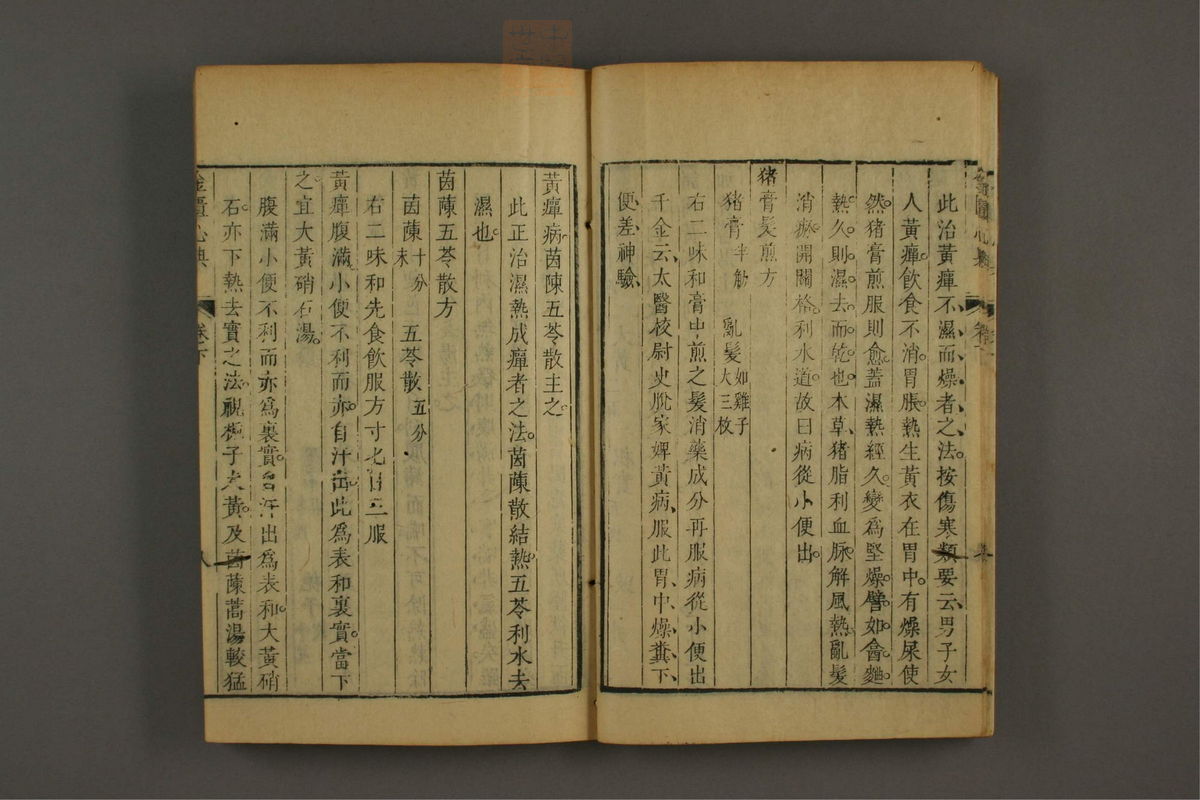 此治黃癉不濕而燥者之法按傷寒類要云男子女
人黃癉飲食不消胃脹熱生黃衣在胃中有燥屎使
然猪膏煎服則愈蓋濕熱經久變為堅燥譬如盦麯
熱久則濕去而乾也本草猪脂利血脉解風熱亂髮
消瘀開關格利水道故曰病從小便出
猪膏髮煎方
猪膏半觔 亂髮如雞子大三枚
右二味和膏中煎之髮消藥成分再服病從小便出
千金云太醫校尉史脫家婢黃病服此胃中燥糞下
便差神驗
黃癉病茵陳五苓散主之
此正治濕熱成癉者之法茵蔯散結熱五苓利水去
濕也
茵蔯五苓散方
茵蔯十分末 五苓散五分
右二味和先食飲服方寸匕日三服
黃癉腹滿小便不利而赤自汗出此為表和裏實當下
之宜大黃硝石湯
腹滿小便不利而赤為裏實自汗出為表和大黃硝
石亦下熱去實之法視梔子大黃及茵蔯蒿湯較猛
金匱心典
卷下
八